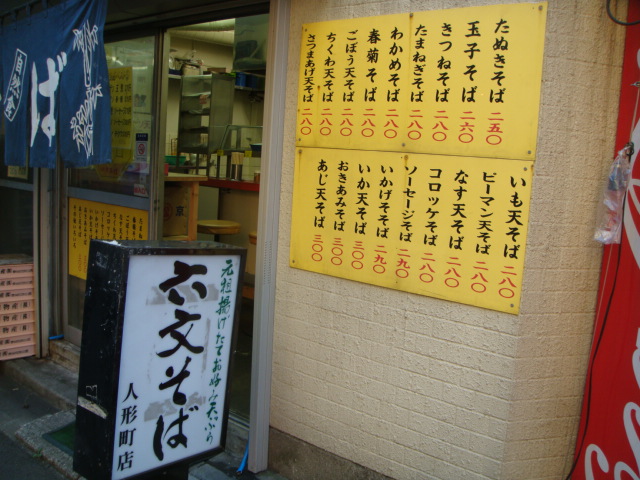 たぬきそば 二五〇
玉子そば 二六〇
きつねそば 二八〇
たまねぎそば 二八〇
わかめそば 二八〇
春菊そば 二八〇
ごぼう天そば 二八〇
ちくわ天そば 二八〇
さつまあげ天そば 二八〇
いも天そば 二八〇
ピーマン天そば 二八〇
なす天そば 二八〇
コロッケそば 二八〇
ソーセージそば 二九〇
いかげそそば 二九〇
いか天そば 三〇〇
おきあみそば 三〇〇
あじ天そば 三〇〇
元祖揚げたてお好み天ぷら
六文そば
人形町店
そば